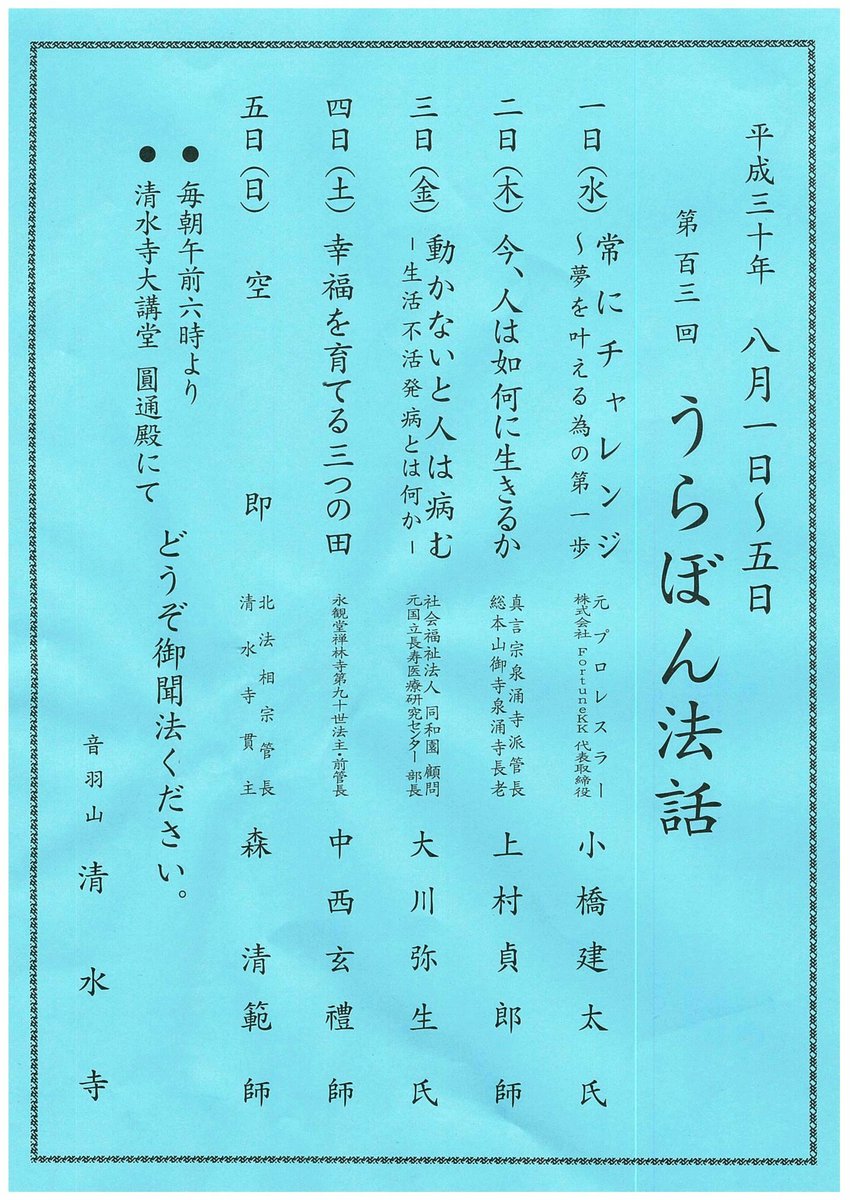 平成三十年 八月一日～五日
第百三回 うらぼん法話
一日（水） 常にチャレンジ
～夢を叶える為の第一歩
元プロレスラー
株式会社 FortuneKK 代表取締役
小橋建太氏
二日（木） 今、人は如何に生きるか
真言宗泉涌寺派管長
総本山御寺泉涌寺長老
上村貞郎師
三日（金） 動かないと人は病む
－生活不活発病とは何か－
社会福祉法人 同和園 顧問
元国立長寿医療研究センター 部長
大川弥生氏
四日（土） 幸福を育てる三つの田
永観堂禅林寺第九十世法主・前管長
中西玄禮師
五日（日） 空即
北法相宗管長
清水寺貫主
森清範師
●毎朝午前六時より
●清水寺大講堂 圓通殿にて
どうぞ御聞法ください。
音羽山 清水寺